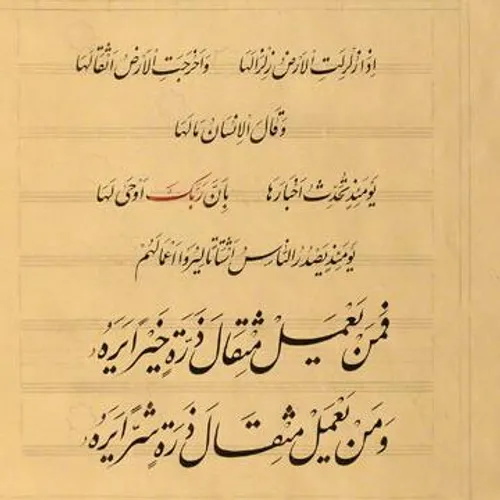 اِذٰا زُلْزِلَتِ الْاَرْضُ زِلْزٰالَهٰا وَ اَخْرَجَتِ الْاَرْضُ اَثْقٰالَهٰا
وَ قٰالَ الْاِنْسٰانُ مٰا لَهٰا
يَوْمَئِذٍ تُحَدِّثُ اَخْبٰارَهٰا بِاَنَّ رَبَّكَ اَوْحٰى لَهٰا
يَوْمَئِذٍ يَصْدُرُ النّٰاسُ اَشْتٰاتًا لِيُرَوْا اَعْمٰالَهُمْ
فَمَنْ يَعْمَلْ مِثْقٰالَ ذَرَّةٍ خَيْرًا يَرَهُ
وَ مَنْ يَعْمَلْ مِثْقٰالَ ذَرَّةٍ شَرًّا يَرَهُ